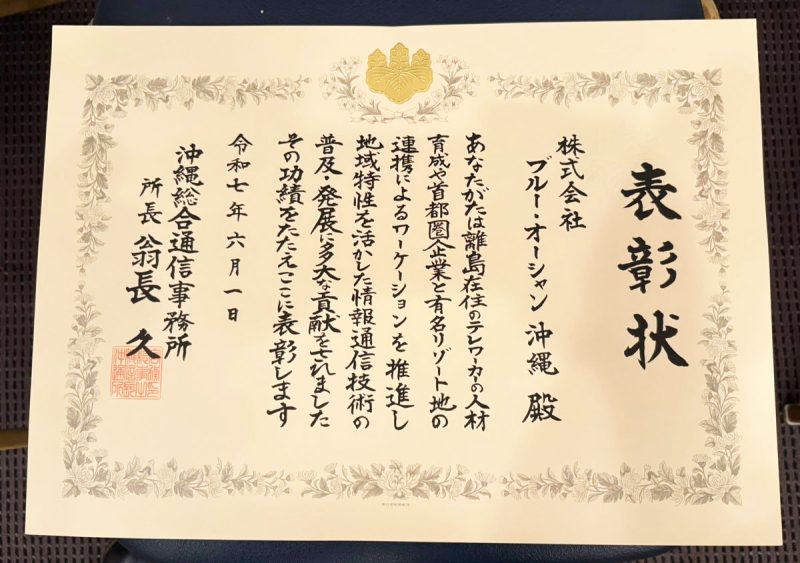 表彰状
株式会社
ブルー・オーシャン沖縄 殿
あなたがたは離島在住のテレワーカーの人材
育成や首都圏企業と有名リゾート地の
連携によるワーケーションを推進し
地域特性を活かした情報通信技術の
普及・発展に多大な貢献をされました
その功績をたたえここに表彰します
令和七年六月一日
沖縄総合通信事務所
所長 翁長 久